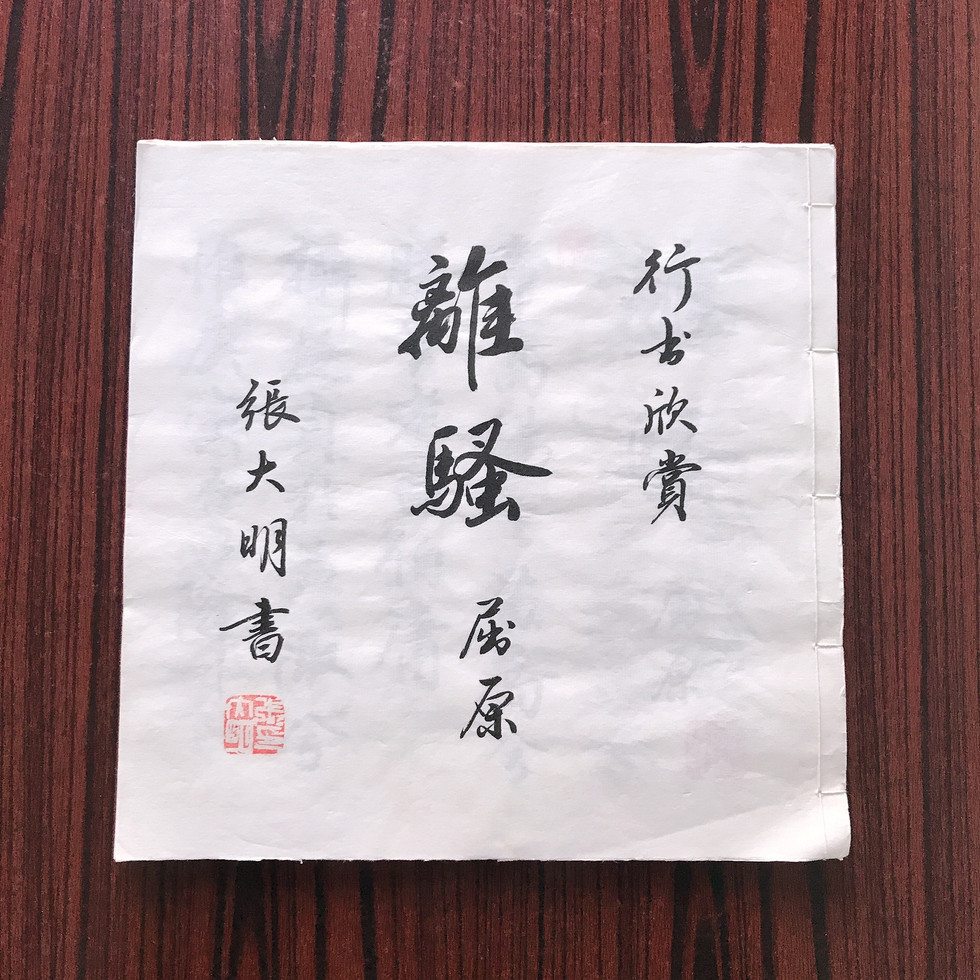 行书欣赏
離騷 屈原
張大明書